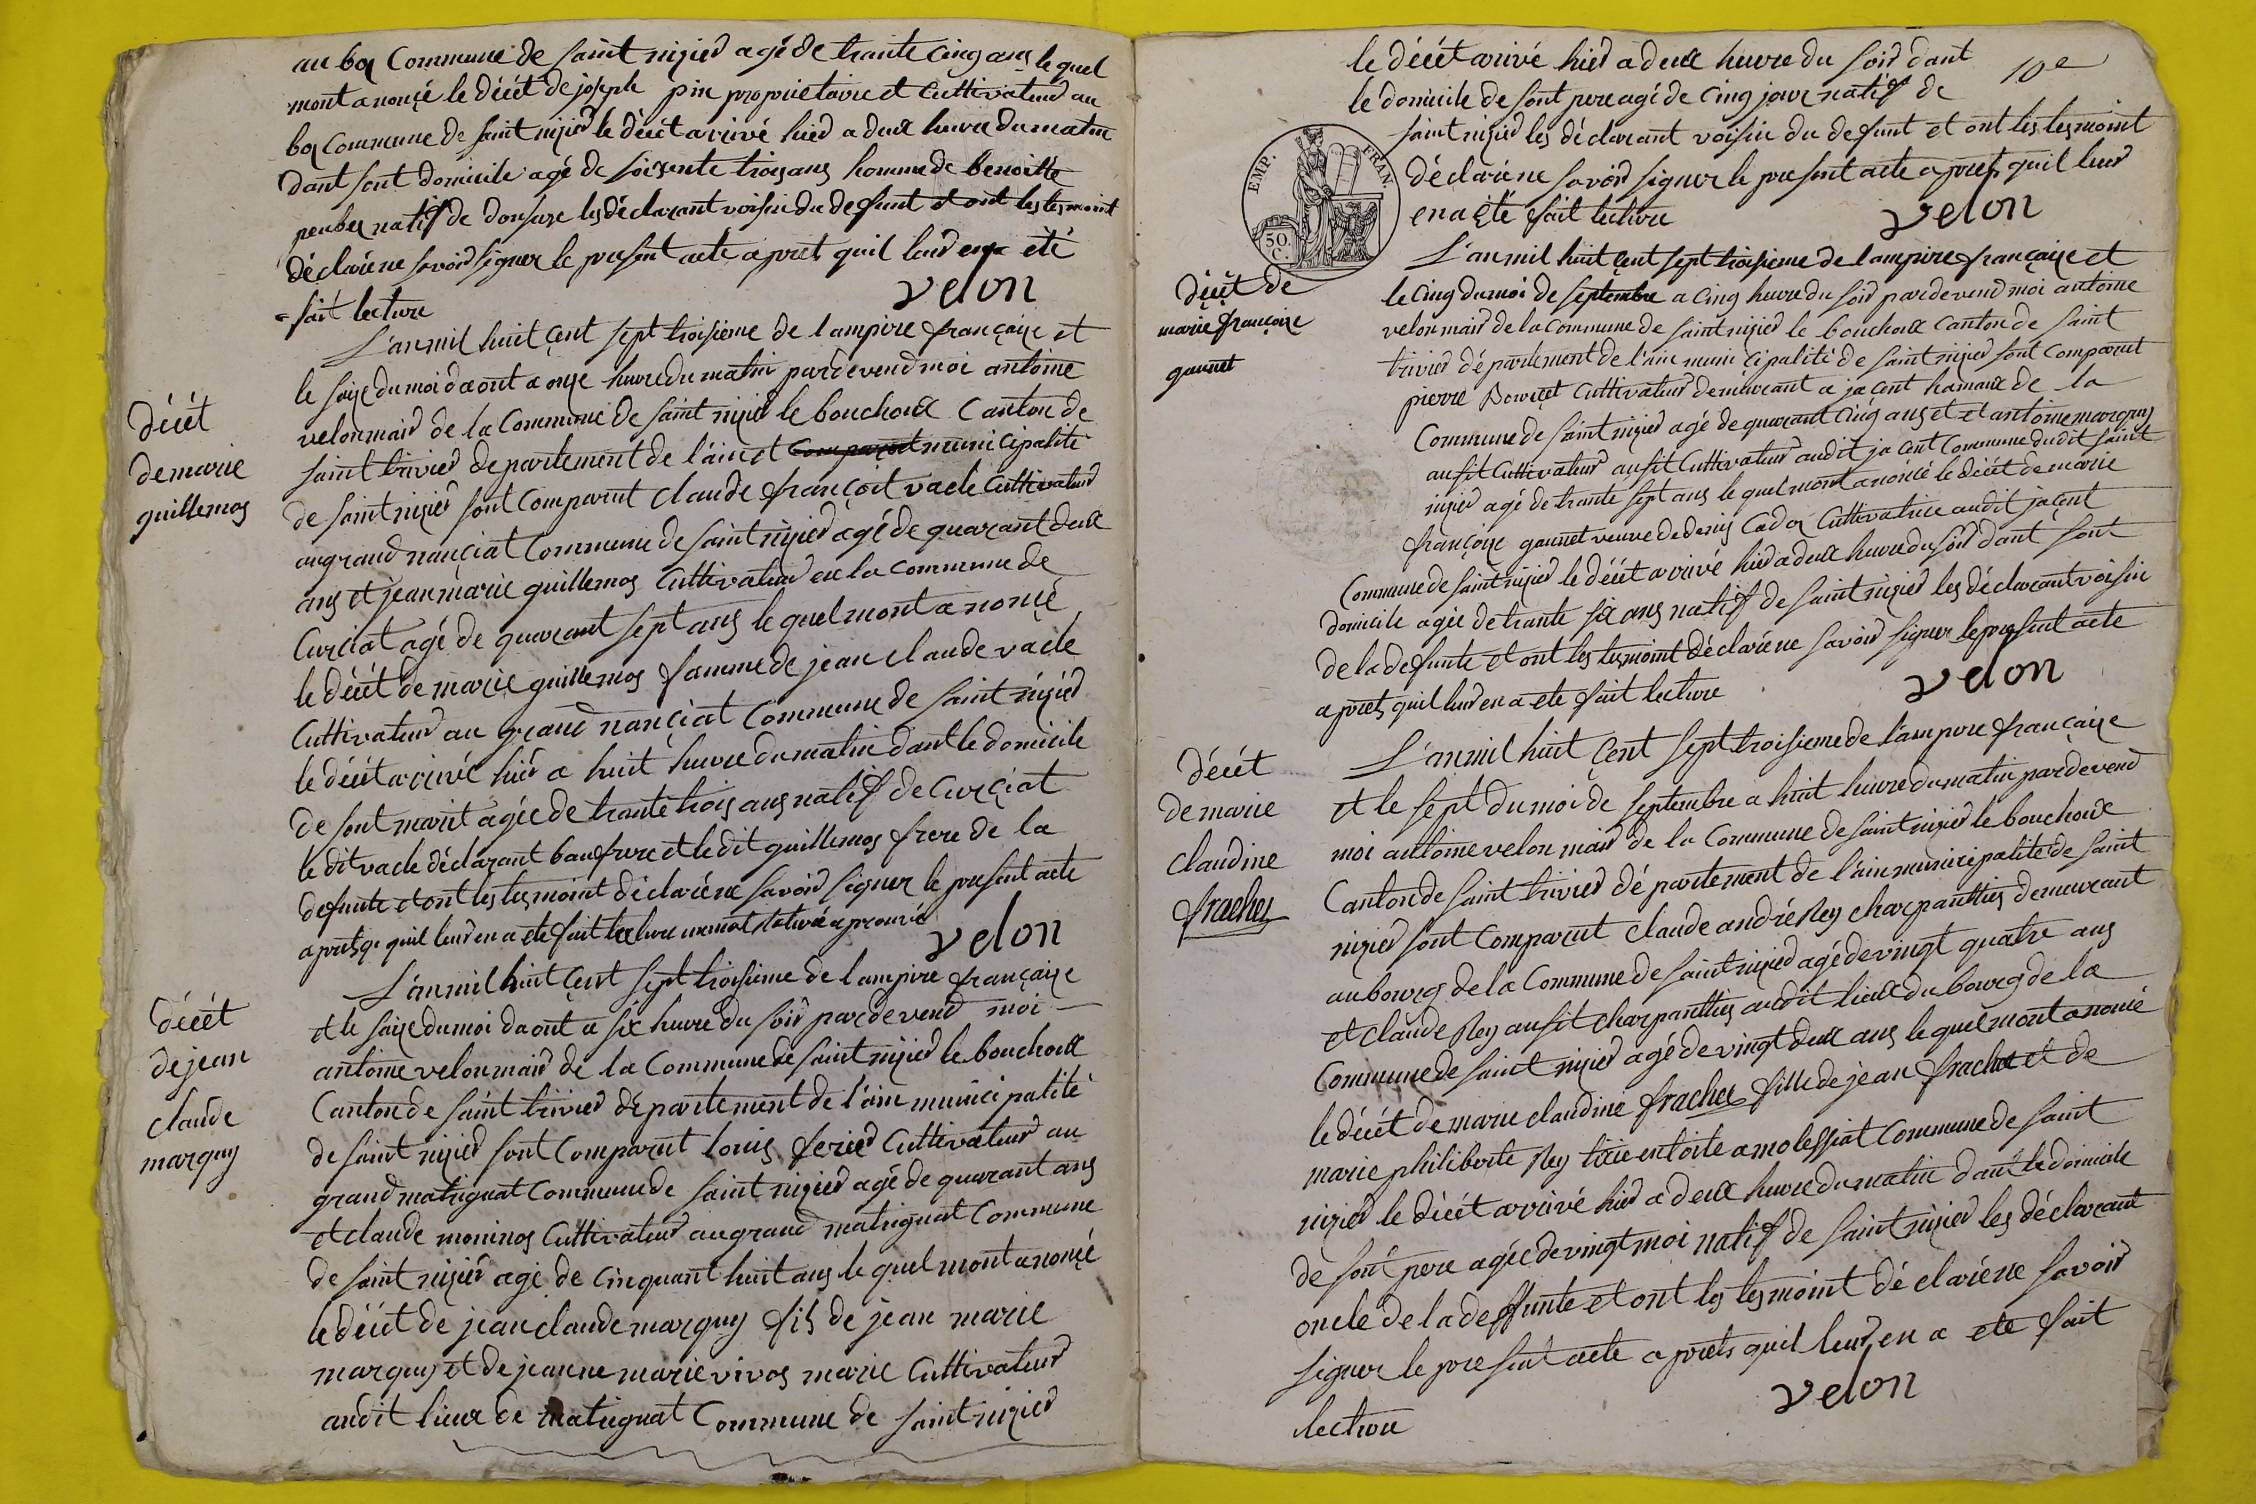 au boy Commune de saint nizier agé de trante Cinq ans le quel
mont anonçé le décét de joseph pin proprietaire et Cultivateur au
boy Commune de saint nizier le décét arrivé hier a deux heure du matin
dant sont domicile agé de soisente trois ans homme de benoitte
peubey natif de donsure les déclarant voisin du defunt et ont les tesmoint
déclaréne savoir signer le present acte apret quil leur en a été
fait lecture
velon
décét
de marie
guillemos
L'an mil huit çent sept troisieme de l ampire françaize et
le saize du moi daout a onze heure du matin pardevend moi antoine
velon mair de la Commune de saint nizier le bouchoux Canton de
saint trivier departement de l'ain et comparoit municipalité
de saint nizier sont Comparut claude françoit vacle Cultivateur
au grand nançiat Commune de saint nizier agé de quarant deux
ans et jean marie guillemos Cultivateur en la commune de
Curciat agé de quarant sept ans le quel mont anoncé
le décét de marie guillemos famme de jean claude vacle
Cultivateur au grand nançiat Commune de saint nizier
le décét arrivé hier a huit heure du matin dant le domicile
de sont marit agée de trante trois ans natif de Curçiat
le dit vacle déclarant baufrere et le dit guillemos frere de la
defunte et ont les tesmoint déclaréne savoir signer le present acte
a prets qu quil leur en a ete fait lecture
velon
décét
de jean
claude
marquy
L'an mil huit çent sept troisieme de l ampire françaize
et le saize du moi daout a six heure du soir pardevend moi
antoine velon mair de la Commune de saint nizier le bouchoux
Canton de saint trivier département de l'ain municipalité
de saint nizier sont Comparut louis ferier Cultivateur au
grand matrignat Commune de saint nizier agé de quarant ans
et claude moninos Cultivateur au grand matrignat Commune
de saint nizier agé de Cinquant huit ans le quel mont anoncé
le décét de jean claude marquy fils de jean marie
marquy et de jeanne marie vivos marie Cultivateur
audit lieux de matrignat Commune de saint nizier
10e
le décét arivé hier a deux heure du soir dant
le domicile de sont pere agé de Cinq jour natif de
saint nizier les déclarant voisin du defunt et ont les tesmoint
déclaréne savoir signer le present acte a prets quil leur
en a été fait lecture
velon
EMP. FRAN.
50.
C.
décét de
marie françoize
gaunet
L'an mil huit çent sept troisieme de l ampire françaize et
le Cinq du moi de septembre a Cinq heure du soir pardevend moi antoine
velon mair de la Commune de saint nizier le bouchoux Canton de saint
trivier département de l'ain municipalité de saint nizier sont Comparut
pierre Bowçet Cultivateur demeurant a jaçent hamaux de la
Commune de saint nizier agé de quarant Cinq ans et et antoine marquy
ausit Cultivateur ausit Cultivateur audit jaçent Commune dudit saint
nizier agé de trante sept ans le quel mont anoncé le décét de marie
françoize gaunet veuve de denis Cadoz Cultivatrice audit jaçent
Commune de saint nizier le décét arrivé hier a deux heure du soir dant sont
domicile agée de trante six ans natif de saint nizier les déclarant voisin
de la defunte et ont les tesmoint déclaréne savoir signer le present acte
a prets quil leur en a ete fait lecture
velon
décét
de marie
claudine
frachey
L'an mil huit çent sept troisieme de l'ampire françaize
et le sept du moi de septembre a huit heure du matin pardevend
moi antoine velon mair de la Commune de saint nizier le bouchoux
Canton de saint trivier département de l'ain municipalité de saint
nizier sont Comparut claude andré Rey charpanttier demeurant
au bourg de la Commune de saint nizier agé de vingt quatre ans
et claude Rey ausit charpanttier audit lieux du bourg de la
Commune de saint nizier agé de vingt deux ans le quel mont anoncé
le décét de marie claudine frachey fille de jean frachet et de
marie philiberte Rey a molessiat Commune de saint
nizier le décét arrivé hier a deux heure du matin dant le domicile
de sont pere agée de vingt moi natif de saint nizier les déclarant
oncle de la deffunte et ont les tesmoint déclaréne savoir
signer le present acte a prets quil leur en a ete fait
lecture
velon